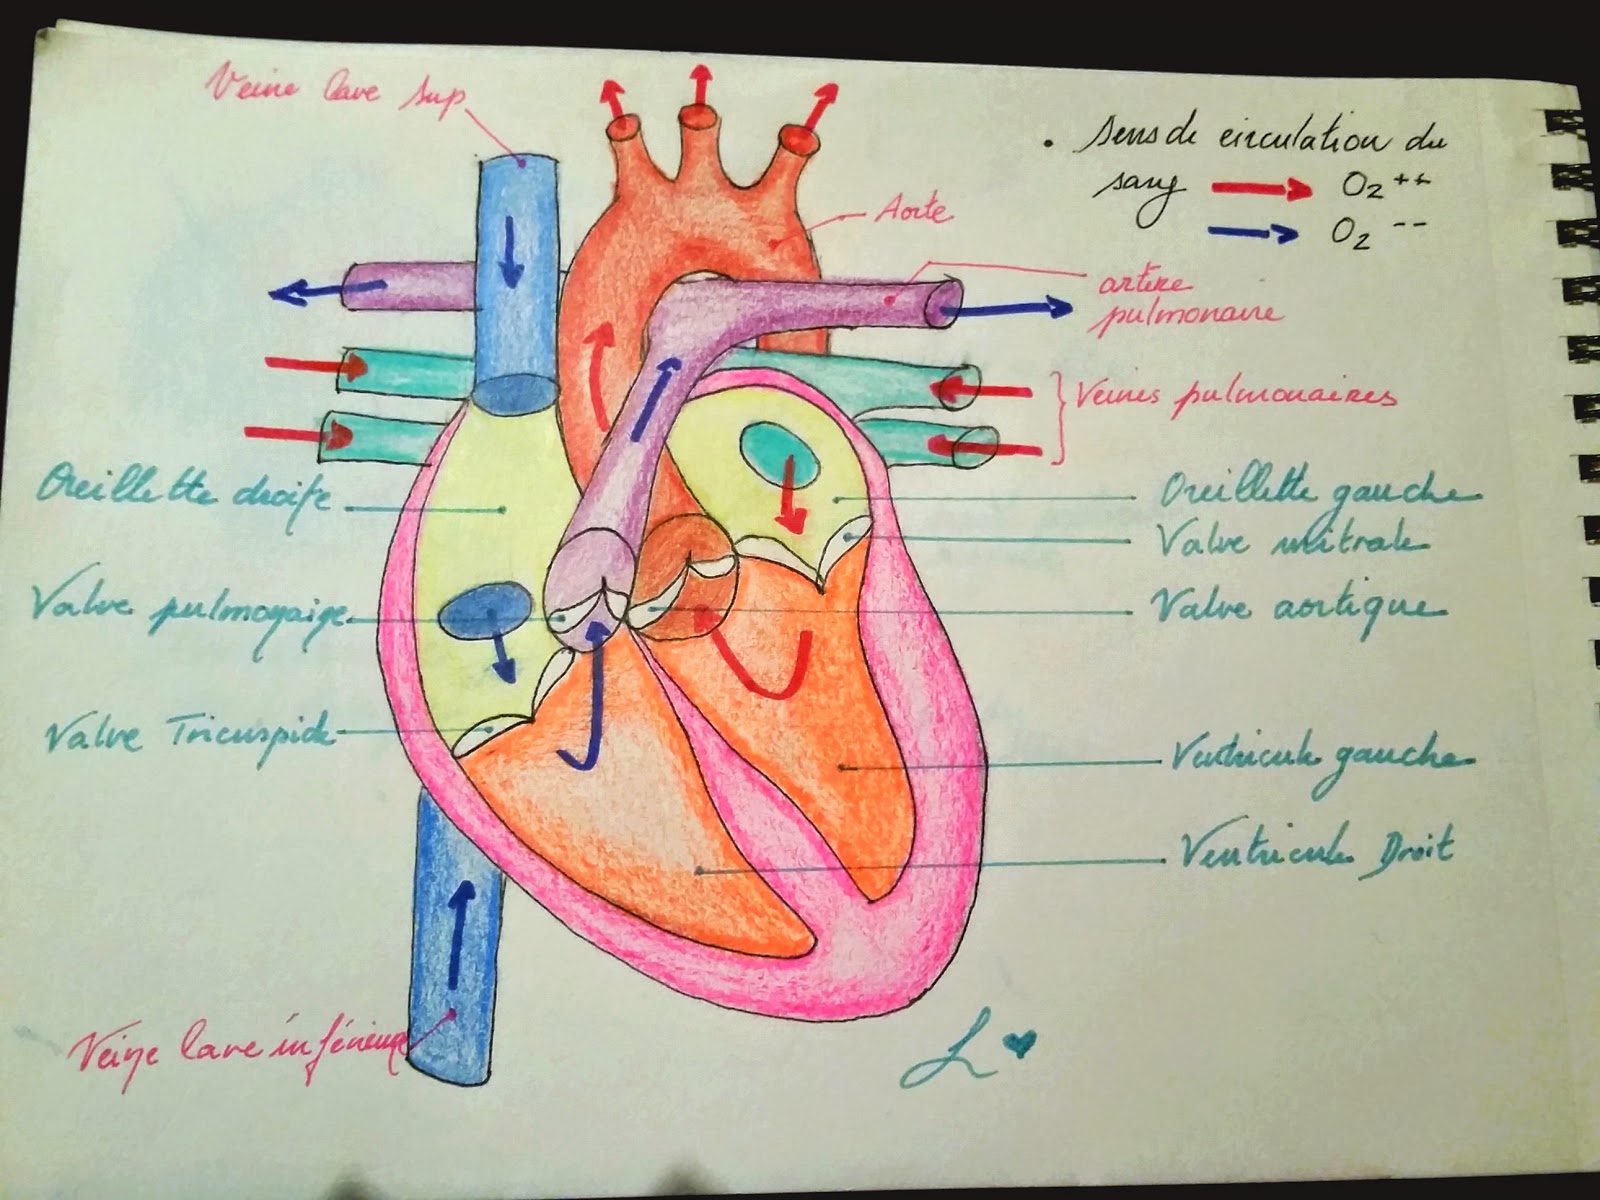 Veine cave sup
. Sens de circulation du
sang → O2 ++
→ O2 --
Aorte
artère
pulmonaire
Veines pulmonaires
Oreillette droite
Oreillette gauche
Valve mitrale
Valve pulmonaire
Valve aortique
Valve Tricuspide
Ventricule gauche
Ventricule Droit
Veine cave inférieure
L